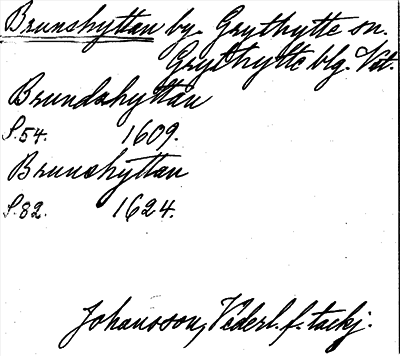 Brunshyttan by. Grythytte sn.
Grythytte blg. Vst.
Brundahyttan
S.54. 1609.
Brunshyttan
S.82. 1624.
Johansson, Vederl. f. tackj.